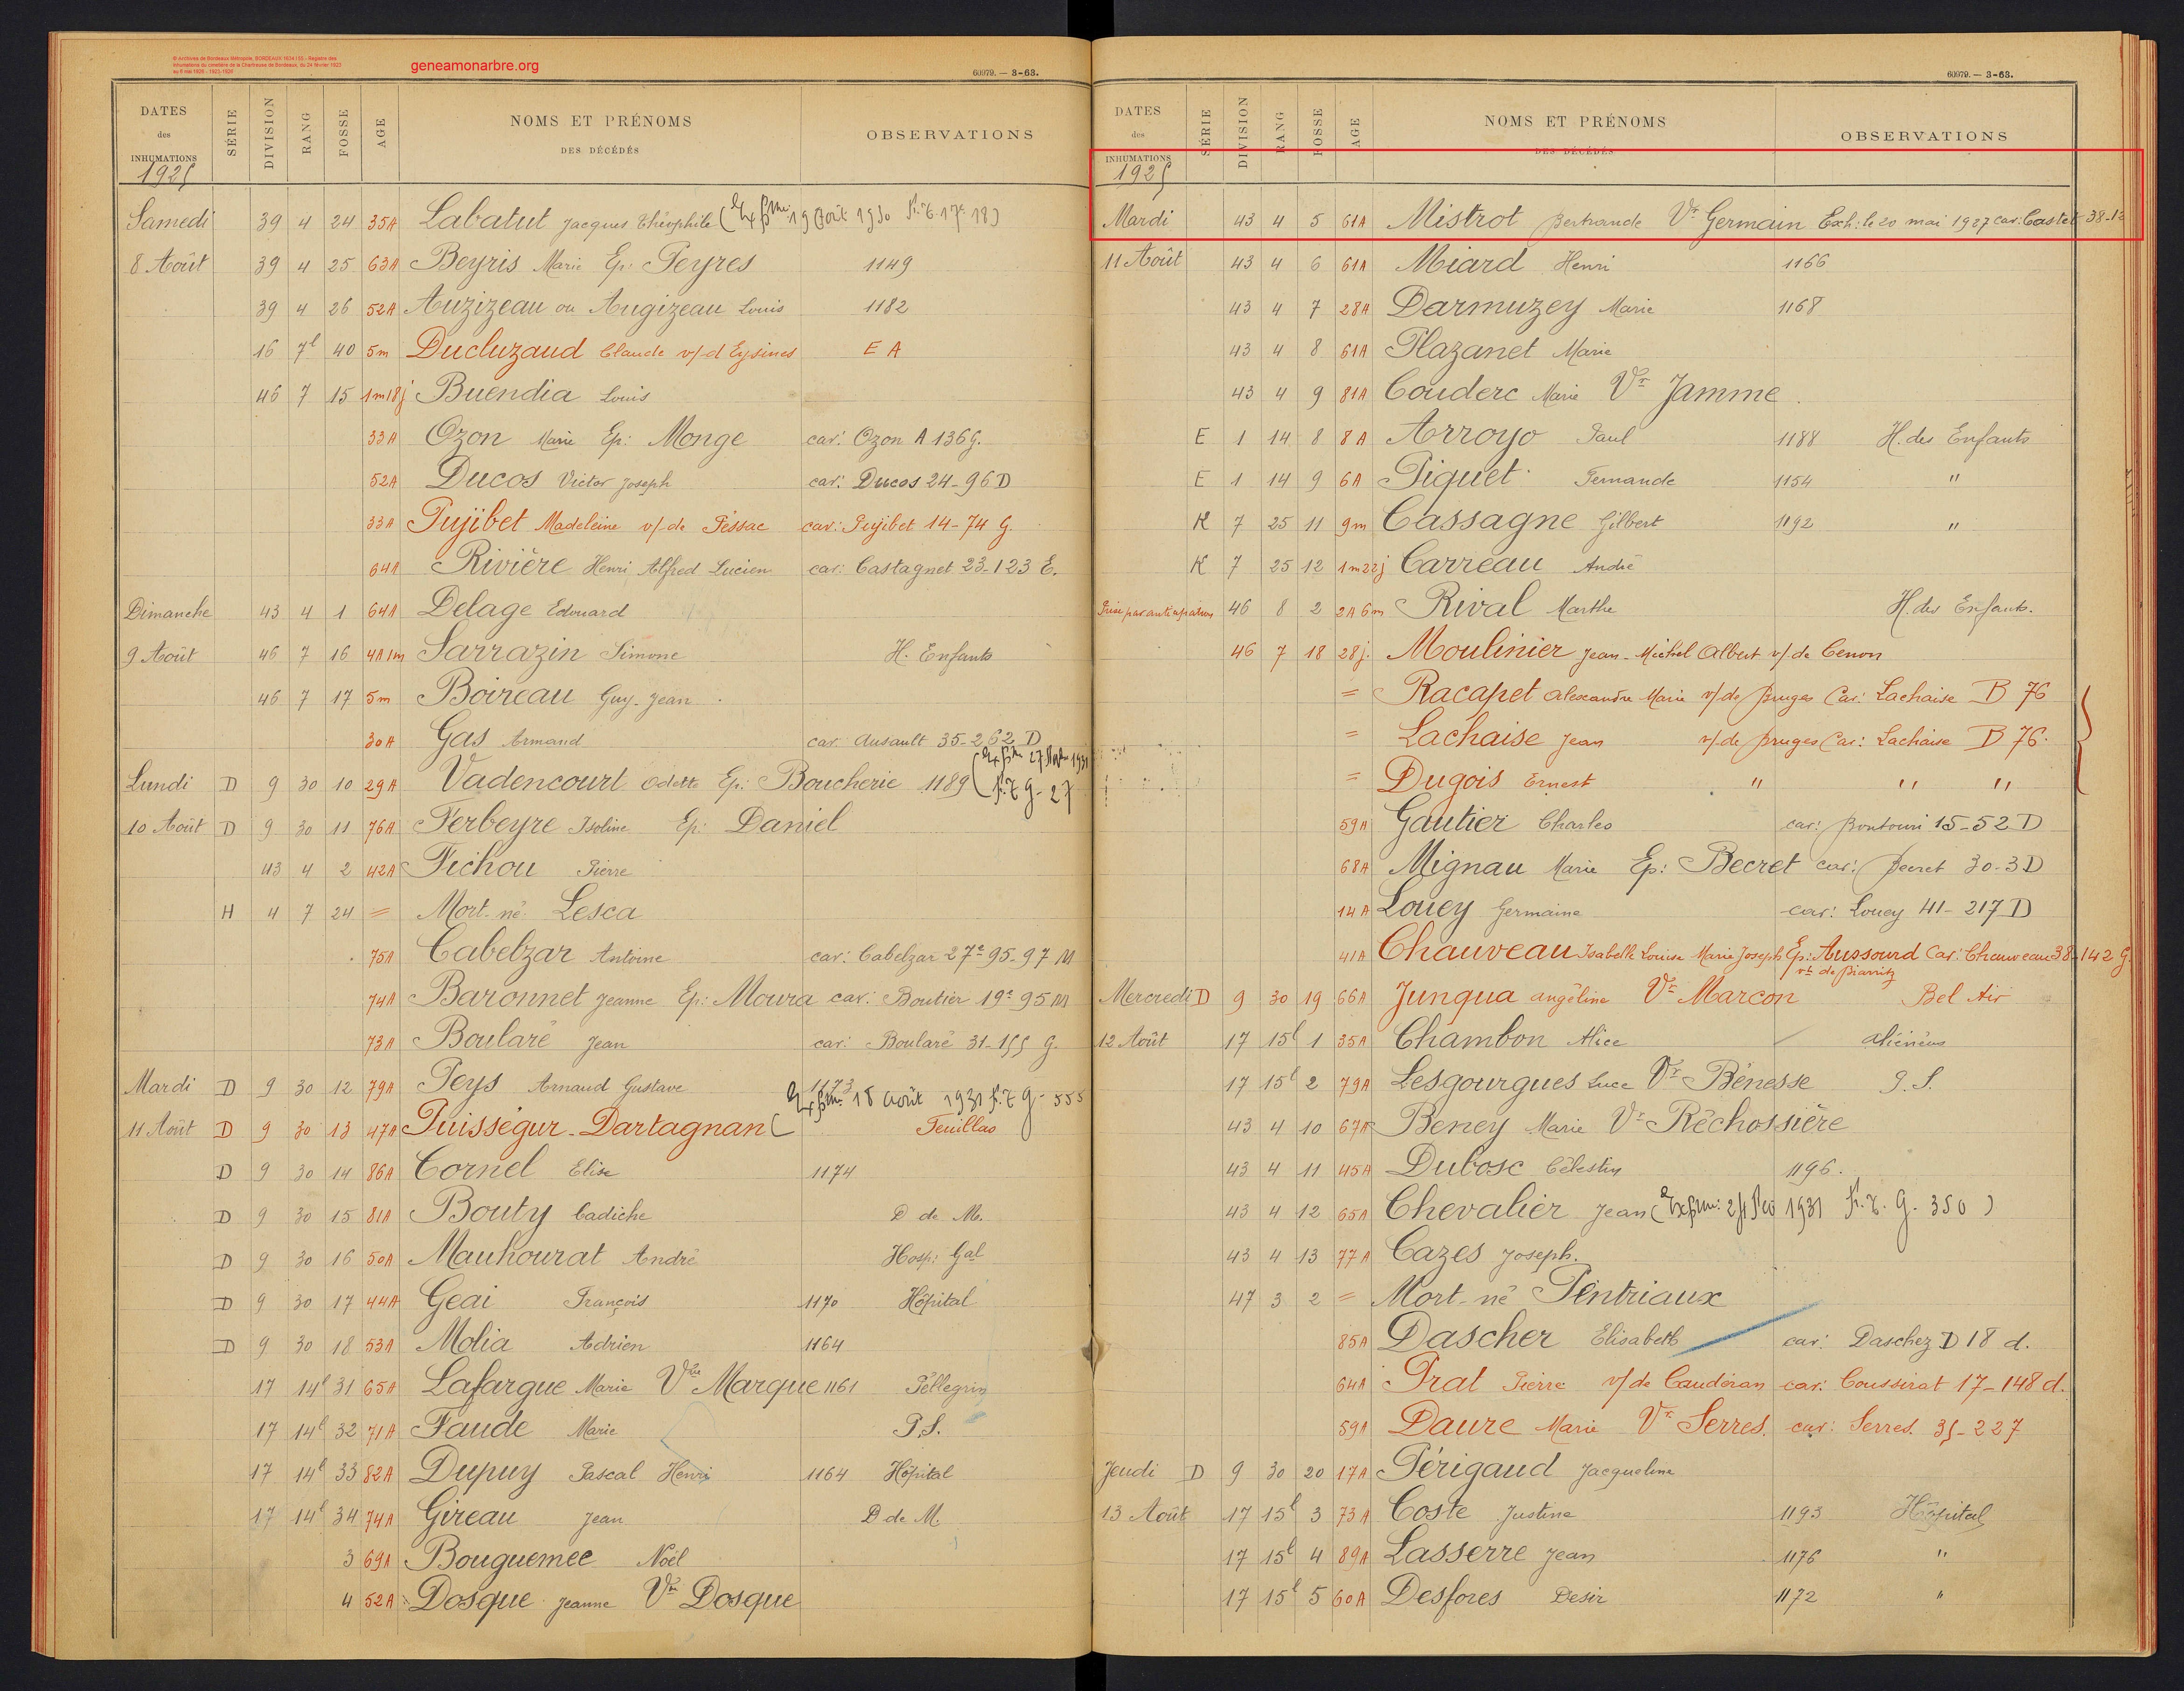 © Archives de Bordeaux Métropole, BORDEAUX 1634 I 55 - Registre des
inhumations du cimetière de la Chartreuse de Bordeaux, du 24 février 1923
au 8 mai 1926 - 1923-1926
geneamonarbre.org
60979. — 3-63.
DATES des INHUMATIONS SÉRIE DIVISION RANG FOSSE AGE NOMS ET PRÉNOMS DES DÉCÉDÉS OBSERVATIONS
1925
Samedi 39 4 24 35A Labatut Jacques Théophile ( 19 Août 1930 18)
8 Août 39 4 25 63A Beyris Marie Ep: Peyres 1149
39 4 26 52A Auzizeau ou Augizeau Louis 1182
16 7l 40 5m Ducluzaud Claude v/-d Eysines E A
46 7 15 1m18j Buendia Louis
33A Ozon Marie Ep: Monge car: Ozon A 136 G.
52A Ducos Victor Joseph car: Ducos 24-96 D
33A Pujibet Madeleine v/-de Pessac car: Pujibet 14-74 G.
64A Rivière Henri Alfred Lucien car: Castagnet 23-123 E.
Dimanche 43 4 1 64A Delage Edouard
9 Août 46 7 16 4A1m Sarrazin Simone H. Enfants
46 7 17 5m Boireau Guy-Jean
30A Gas Armand car. Ausault 35-262 D
Lundi D 9 30 10 29A Vadencourt Odette Ep: Boucherie 1189 ( 27 1931 27
10 Août D 9 30 11 76A Ferbeyre Isoline Ep: Daniel
43 4 2 42A Fichou Pierre
H 4 7 24 = Mort-né Lesca
75A Cabelzar Antoine car: Cabelzar 27e 95-97 M
74A Baronnet Jeanne Ep: Moura car: Boutier 19e 95 M
73A Boularé Jean car: Boularé 31-155 G.
Mardi D 9 30 12 79A Peys Arnaud Gustave 1173
18 Août 1931 555
11 Août D 9 30 13 47A Puisségur-Dartagnan ( Feuillas
D 9 30 14 86A Cornel Elise 1174
D 9 30 15 81A Bouty Cadiche D de M.
D 9 30 16 50A Mauhourat André Hosp: Gal
D 9 30 17 44A Geai François 1170 Hôpital
D 9 30 18 53A Molia Adrien 1164
17 14l 31 65A Lafargue Marie Vve Marque 1161 Pellegrin
17 14l 32 71A Faude Marie P.S.
17 14l 33 82A Dupuy Pascal Henri 1164 Hôpital
17 14l 34 74A Gireau Jean D de M.
3 69A Bouguemee Noël
4 52A Dosque Jeanne Ve Dosque
60979. — 3-63.
DATES des INHUMATIONS SÉRIE DIVISION RANG FOSSE AGE NOMS ET PRÉNOMS DES DÉCÉDÉS OBSERVATIONS
1925
Mardi 43 4 5 61A Mistrot Bertrande Ve Germain Exh: le 20 mai 1927 car: Castel 38-12
11 Août 43 4 6 61A Miard Henri 1166
43 4 7 28A Darmuzey Marie 1168
43 4 8 61A Plazanet Marie
43 4 9 81A Couderc Marie Ve Jamme
E 1 14 8 8A Arroyo Paul 1188 H. des Enfants
E 1 14 9 6A Piquet Fernande 1154 "
K 7 25 11 9m Cassagne Gilbert 1192 "
K 7 25 12 1m22j Carreau André
Prise par anticipation 46 8 2 2A6m Rival Marthe H. des Enfants.
46 7 18 28j. Moulinier Jean-Michel Albert v/-de Cenon
= Racapet Alexandre Marie v/-de Bruges Car: Lachaise B 76
= Lachaise Jean v/-de Bruges Car: Lachaise B 76.
= Dugois Ernest " " "
59A Gautier Charles car: 15-52 D
68A Mignau Marie Ep: Becret car: Becret 30-3 D
14A Louey Germaine car: Louey 41-217 D
41A Chauveau Isabelle Louise Marie Joseph Ep: Aussourd Car: Chauveau 38-142 G.
vt de Biarritz
Mercredi D 9 30 19 66A Junqua Angéline Ve Marcon Bel Air
12 Août 17 15l 1 35A Chambon Alice aliénées
17 15l 2 79A Lesgourgues Luce Ve Bénesse P.S.
43 4 10 67A Beney Marie Ve Réchossière
43 4 11 45A Dubosc Célestin 1196.
43 4 12 65A Chevalier Jean ( 1931 G. 350 )
43 4 13 77A Cazes Joseph.
47 3 2 = Mort-né Pentriaux
85A Dascher Elisabeth car: Daschez D 18 d.
64A Prat Pierre v/-de Caudéran car: Coussirat 17-148 d.
59A Daure Marie Ve Serres. car: Serres. 35-227
Jeudi D 9 30 20 17A Périgaud Jacqueline
13 Août 17 15l 3 73A Coste Justine 1193 Hôpital
17 15l 4 89A Lasserre Jean 1176 "
17 15l 5 60A Desfores Desir 1172 "